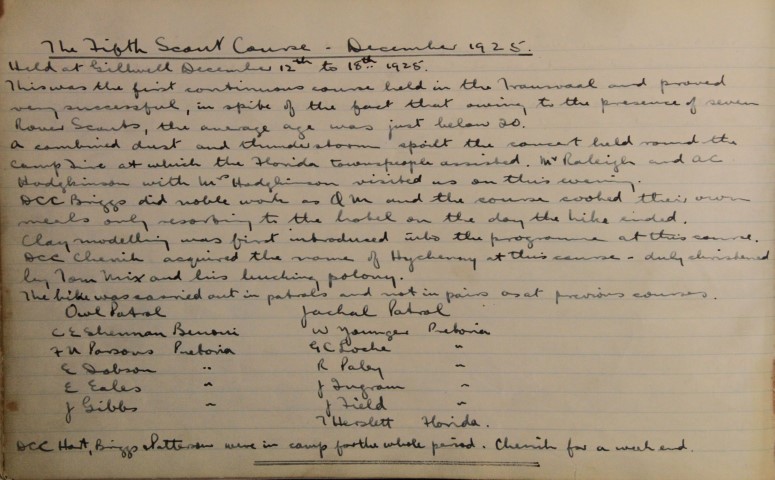 The Fifth Scout Course - December 1925.
Held at Gillwell December 12th to 18th 1925.
This was the first continuous course held in the Transvaal and proved
very successful, in spite of the fact that owing to the presence of seven
Rover Scouts, the average age was just below 20.
A combined dust and thunderstorm spoilt the concert held round the
Camp Fire at which the Florida townspeople assisted. Mr Raleigh and AC
Hodgkinson with Mrs Hodgkinson visited us on this evening.
DCC Briggs did noble work as QM and the course cooked their own
meals only resorting to the hotel on the day the hike ended.
Clay modelling was first introduced into the programme at this course.
DCC Chenik acquired the name of at this course - duly christened
by Tom Mix and his polony.
The hike was carried out in patrols and not in pairs as at previous courses.
Owl Patrol Jackal Patrol
C E Shennan Benoni W Younger Pretoria
F N Parsons Pretoria G C Locke "
E Dobson " R Paley "
E Eales " J Ingram "
J Gibbs " J Field "
T Florida.
DCC Hart, Briggs & Patterson were in camp for the whole period. Chenik for a week end.